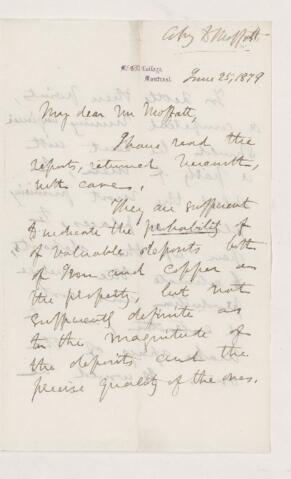 McGill College,
Montreal.
June 25, 1879
My dear Mr Moffatt,
I have read the
reports, returned herewith,
with care.
They are sufficient
to indicate the probability of
of valuable deposits both
of Iron and copper on
the property, but not
sufficiently definite as
to the magnitude of
the deposits and the
precise quality of the ores.